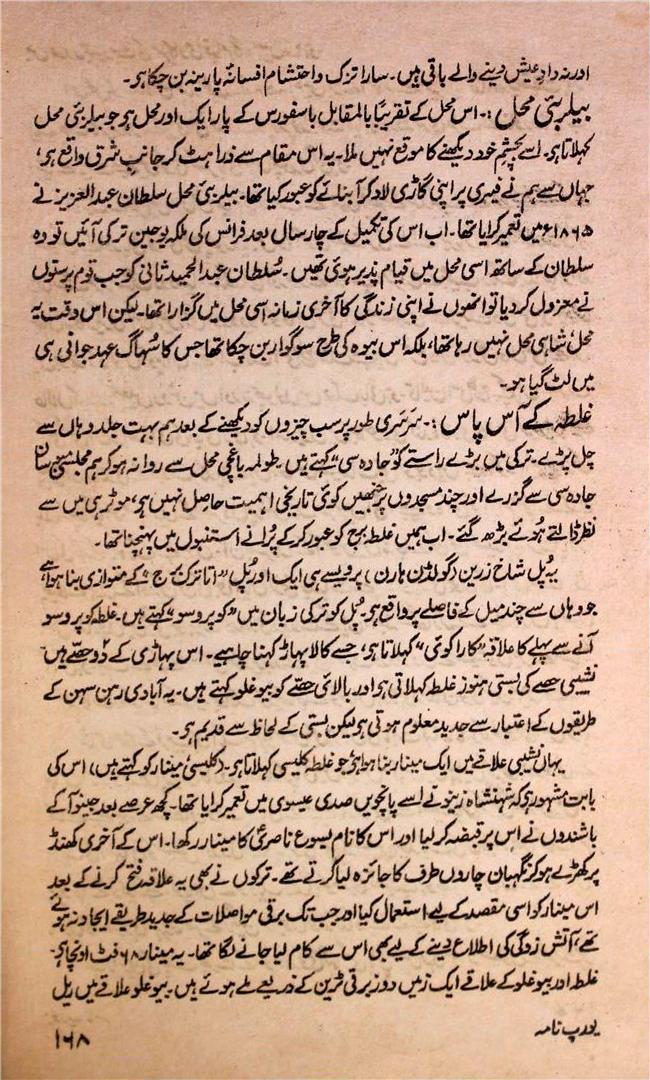 اور نہ دادِ عیش دینے والے باقی ہیں۔ سارا تزک و احتشام افسانۂ پارینہ بن چکا ہو۔
بیلربئی محل :۔ اس محل کے تقریباً بالمقابل باسفورس کے پار ایک اور محل ہو جو بیلر بئی محل
کہلاتا ہو۔ اسے بچشمِ خود دیکھنے کا موقع نہیں ملا۔ یہ اس مقام سے ذرا ہٹ کر جانبِ شرق واقع ہو،
جہاں سے ہم نے فیری پر اپنی گاڑی لاد کر آبنائے کو عبور کیا تھا۔ بیلربئی محل سلطان عبدالعزیز نے
۱۸۶۵ء میں تعمیر کرایا تھا۔ اب اس کی تکمیل کے چار سال بعد فرانس کی ملکہ یوجین ترکی آئیں تو وہ
سلطان کے ساتھ اسی محل میں قیام پذیر ہوئی تھیں۔ سُلطان عبدالحمید ثانی کو جب قوم پرستوں
نے معزول کر دیا تو انھوں نے اپنی زندگی کا آخری زمانہ اسی محل میں گزارا تھا۔ لیکن اس وقت یہ
محل شاہی محل نہیں رہا تھا، بلکہ اس بیوہ کی طرح سوگوار بن چکا تھا جس کا سُہاگ عہدِ جوانی ہی
میں لٹ گیا ہو۔
غلطہ کے آس پاس :۔ سَرسَری طور پر سب چیزوں کو دیکھنے کے بعد ہم بہت جلد وہاں سے
چل پڑے۔ ترکی میں بڑے راستے کو "جادہ سی" کہتے ہیں۔ طولمہ باغچی محل سے روانہ ہو کر ہم مجلسِ
جادہ سی سے گزرے اور چند مسجدوں پر جنھیں کوئی تاریخی اہمیت حاصل نہیں ہو، موٹر ہی میں سے
نظر ڈالتے ہُوئے بڑھ گئے۔ اب ہمیں غلطہ برج کو عبور کر کے پُرانے استنبول میں پہنچنا تھا۔
یہ پُل شاخِ زریں (گولڈن ہارن) پر ویسے ہی ایک اور پُل "اتاترک برج" کے متوازی بنا ہوا ہے
جو وہاں سے چند میل کے فاصلے پر واقع ہو۔ پُل کو ترکی زبان میں "کوپروسو" کہتے ہیں۔ غلطہ کوپروسو
آنے سے پہلے کا علاقہ "کارا کوئی" کہلاتا ہو، جسے کالا پہاڑ کہنا چاہیے۔ اس پہاڑی کے دو حصّے ہیں
نشیبی حصے کی بستی ہنوز غلطہ کہلاتی ہو اور بالائی حصّے کو بیوغلو کہتے ہیں۔ یہ آبادی رہن سہن کے
طریقوں کے اعتبار سے جدید معلوم ہوتی ہو لیکن بستی کے لحاظ سے قدیم ہو۔
یہاں نشیبی علاقے میں ایک مینار بنا ہوا ہو جو غلطہ کلیسی کہلاتا ہو۔ (کلیسی مینار کو کہتے ہیں) اس کی
بابت مشہور ہو کہ شہنشاہ زینو نے اسے پانچویں صدی عیسوی میں تعمیر کرایا تھا۔ کچھ عرصے بعد جینوآ کے
باشندوں نے اس پر قبضہ کر لیا اور اس کا نام یسوع ناصری کا مینار رکھا۔ اس کے آخری کھنڈ
پر کھڑے ہو کر نگہبان چاروں طرف کا جائزہ لیا کرتے تھے۔ ترکوں نے بھی یہ علاقہ فتح کرنے کے بعد
اس مینار کو اسی مقصد کے لیے استعمال کیا اور جب تک برقی مواصلات کے جدید طریقے ایجاد نہ ہوئے
تھے، آتش زدگی کی اطلاع دینے کے لیے بھی اس سے کام لیا جانے لگا تھا۔ یہ مینار ۶۸ فٹ اونچا ہو۔
غلطہ اور بیوغلو کے علاقے ایک زمیں دوز برقی ٹرین کے ذریعے ملے ہوئے ہیں۔ بیوغلو علاقے میں ریل
یورپ نامہ
۱۶۸